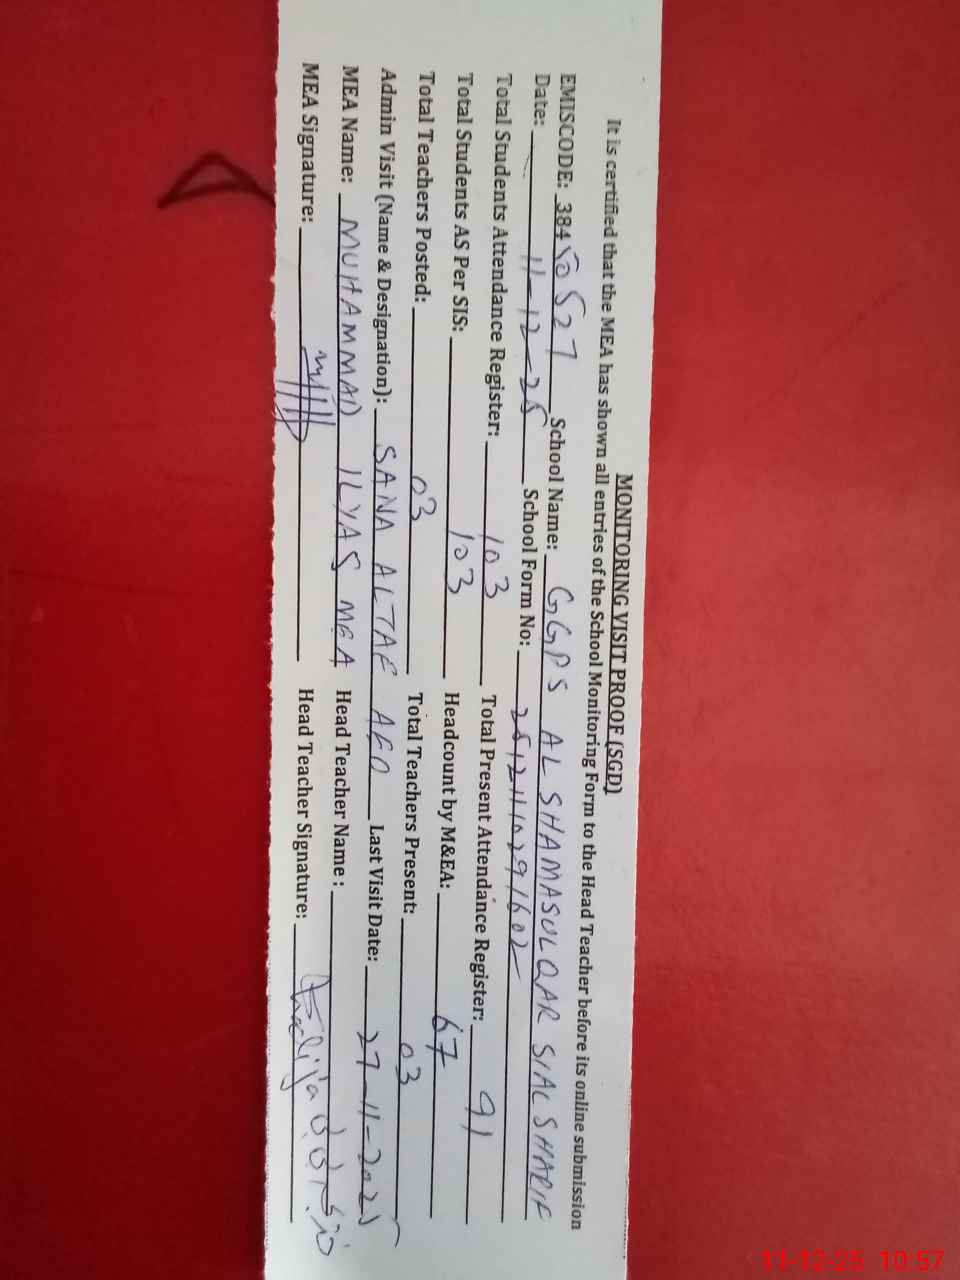 MONITORING VISIT PROOF (SGD)
It is certified that the MEA has shown all entries of the School Monitoring Form to the Head Teacher before its online submission
EMISCODE: 38450527 School Name: GGPS AL SHAMASULQAR SIAL SHARIF
Date: 11-12-25 School Form No: 2512110291602
Total Students Attendance Register: 103 Total Present Attendance Register: 91
Total Students AS Per SIS: 103 Headcount by M&EA: 67
Total Teachers Posted: 03 Total Teachers Present: 03
Admin Visit (Name & Designation): SANA ALTAF AEO Last Visit Date: 27-11-2025
MEA Name: MUHAMMAD ILYAS MEA Head Teacher Name:
MEA Signature: Head Teacher Signature:
11-12-25 10:57